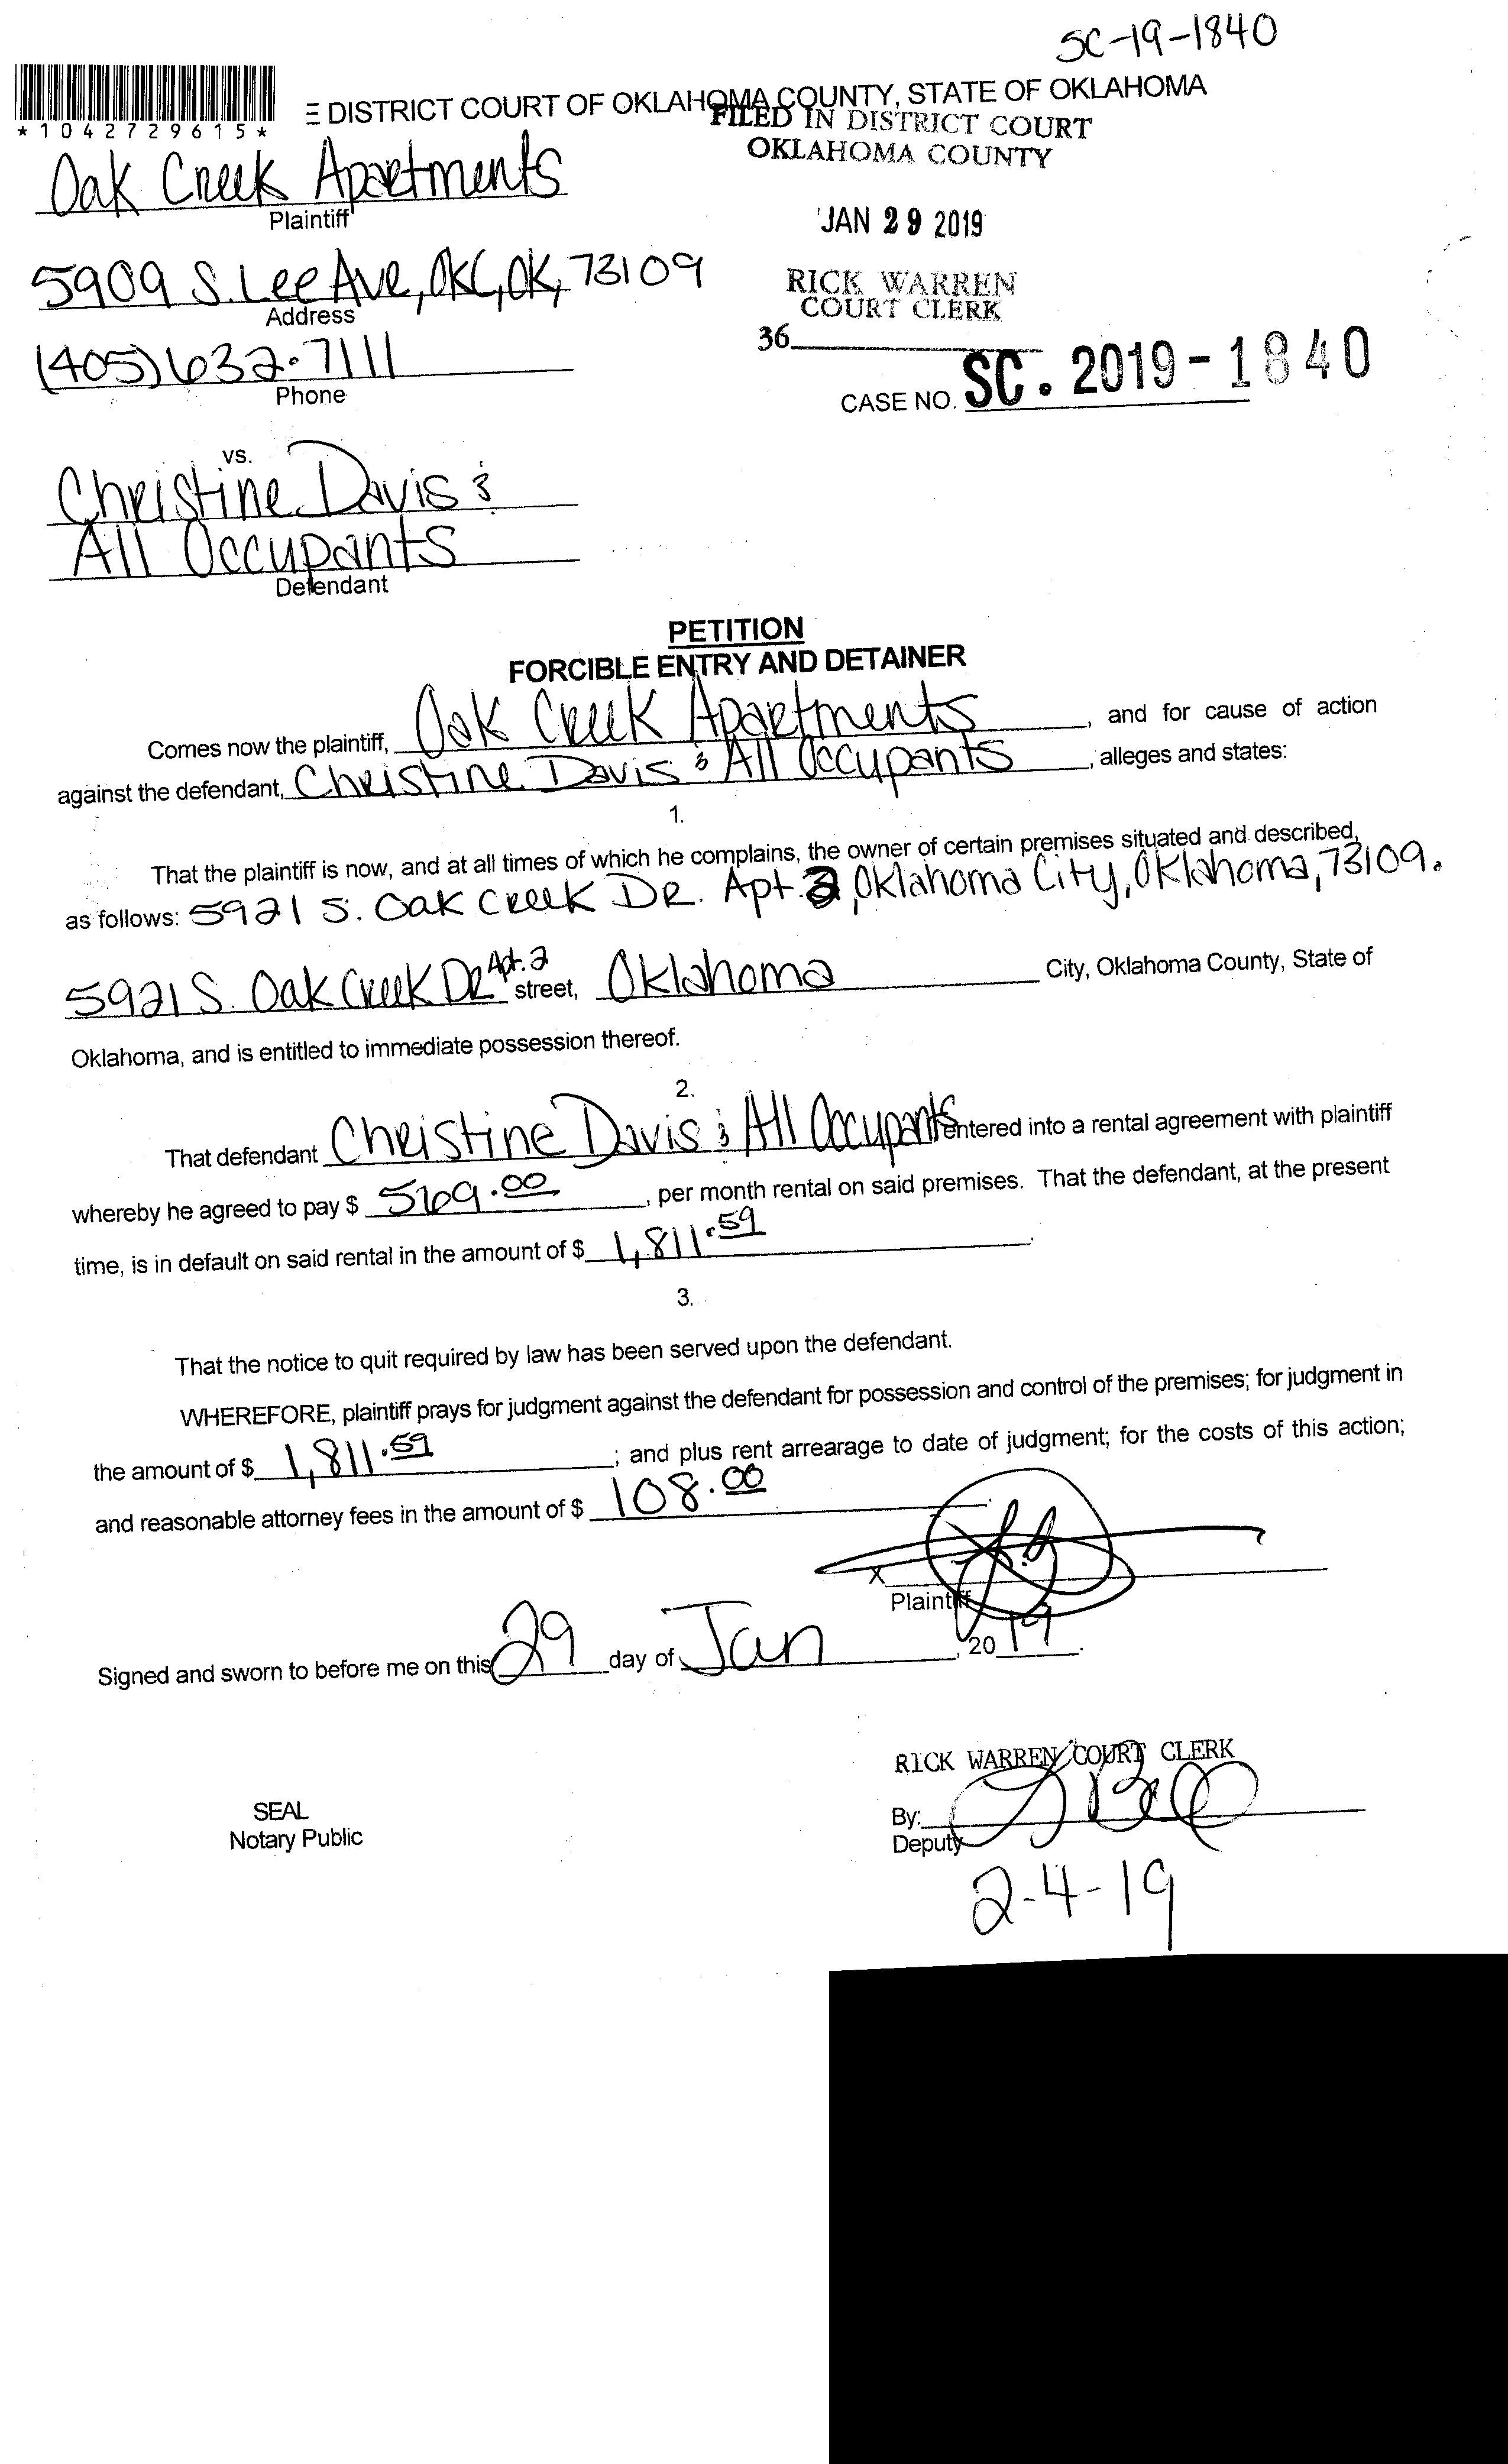 SC-19-1840
*1042729615*
E DISTRICT COURT OF OKLAHOMA COUNTY, STATE OF OKLAHOMA
FILED IN DISTRICT COURT
OKLAHOMA COUNTY
Oak Creek Apartments
Plaintiff
JAN 29 2019
5909 S. Lee Ave, OKC, OK, 73109
Address
RICK WARREN
COURT CLERK
(405) 632-7111
Phone
36
CASE NO. SC. 2019-1840
vs.
Christine Davis &
All Occupants
Defendant
PETITION
FORCIBLE ENTRY AND DETAINER
Comes now the plaintiff, Oak Creek Apartments, and for cause of action
against the defendant, Christine Davis & All Occupants, alleges and states:
1.
That the plaintiff is now, and at all times of which he complains, the owner of certain premises situated and described,
as follows: 5921 S. Oak Creek DR. Apt. 2, Oklahoma City, Oklahoma, 73109.
5921 S. Oak Creek DR Apt. 2 street, Oklahoma City, Oklahoma County, State of
Oklahoma, and is entitled to immediate possession thereof.
2.
That defendant Christine Davis & All Occupants entered into a rental agreement with plaintiff
whereby he agreed to pay $ 569.00, per month rental on said premises. That the defendant, at the present
time, is in default on said rental in the amount of $ 1,811.59.
3.
That the notice to quit required by law has been served upon the defendant.
WHEREFORE, plaintiff prays for judgment against the defendant for possession and control of the premises; for judgment in
the amount of $ 1,811.59; and plus rent arrearage to date of judgment; for the costs of this action;
and reasonable attorney fees in the amount of $ 108.00.
X
Plaintiff
Signed and sworn to before me on this 29 day of Jan, 2019.
RICK WARREN COURT CLERK
SEAL
Notary Public
By:
Deputy
2-4-19